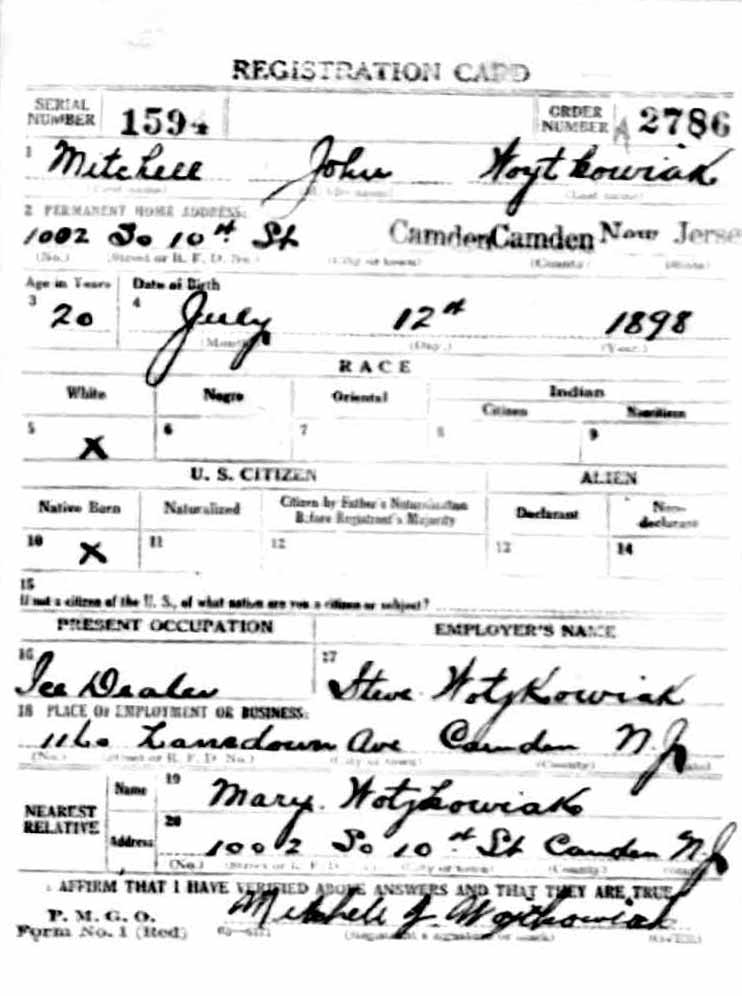 REGISTRATION CARD
SERIAL NUMBER 1594 ORDER NUMBER A 2786
1 Mitchell John Woytkowiak
(First name) (Middle name) (Last name)
2 PERMANENT HOME ADDRESS:
1002 So 10th St Camden Camden New Jerse
(No.) (Street or R. F. D. No.) (City or town) (County) (State)
Age in Years Date of Birth
3 20 4 July 12th 1898
(Month) (Day.) (Year.)
RACE
White Negro Oriental Indian
Citizen Noncitizen
5 X 6 7 8 9
U. S. CITIZEN ALIEN
Native Born Naturalized Citizen by Father's Naturalization Before Registrant's Majority Declarant Non-declarant
10 X 11 12 13 14
15
If not a citizen of the U. S., of what nation are you a citizen or subject?
PRESENT OCCUPATION EMPLOYER'S NAME
16 Ice Dealer 17 Steve Wotzkowiak
18 PLACE OF EMPLOYMENT OR BUSINESS:
1160 Lansdown Ave Camden N.J
(No.) (Street or R. F. D. No.) (City or town) (County) (State)
NEAREST RELATIVE Name 19 Mary Wotzkowiak
Address 20 1002 So 10th St Camden N.J
(No.) (Street or R. F. D. No.) (City or town) (County) (State)
I AFFIRM THAT I HAVE VERIFIED ABOVE ANSWERS AND THAT THEY ARE TRUE
P. M. G. O.
Form No. 1 (Red) Mitchell J. Woytkowiak
(Registrant's signature or mark) (OVER)